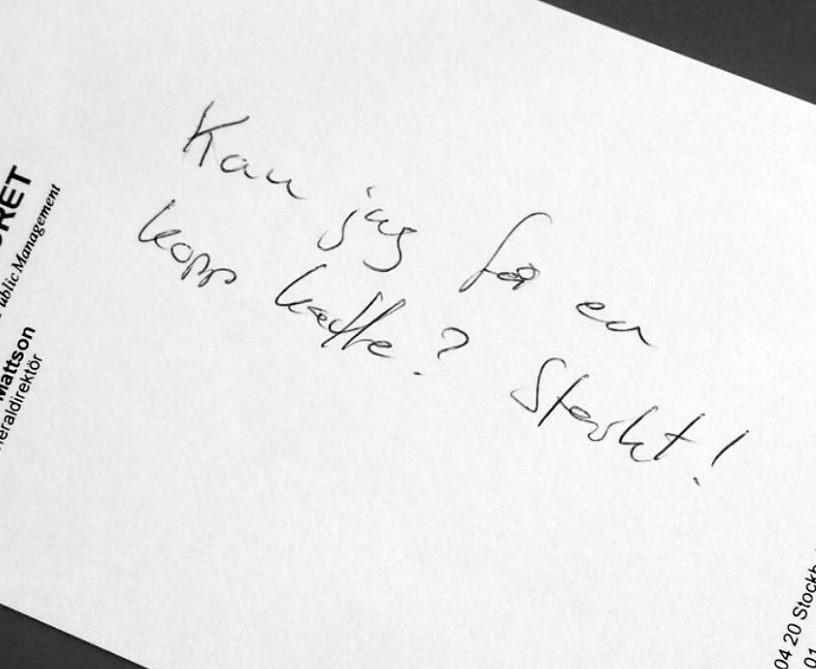 Kan jag få en
kopp kaffe? Starkt!
RET
ublic Management
Mattson
neraldirektör
04 20 Stockh
01